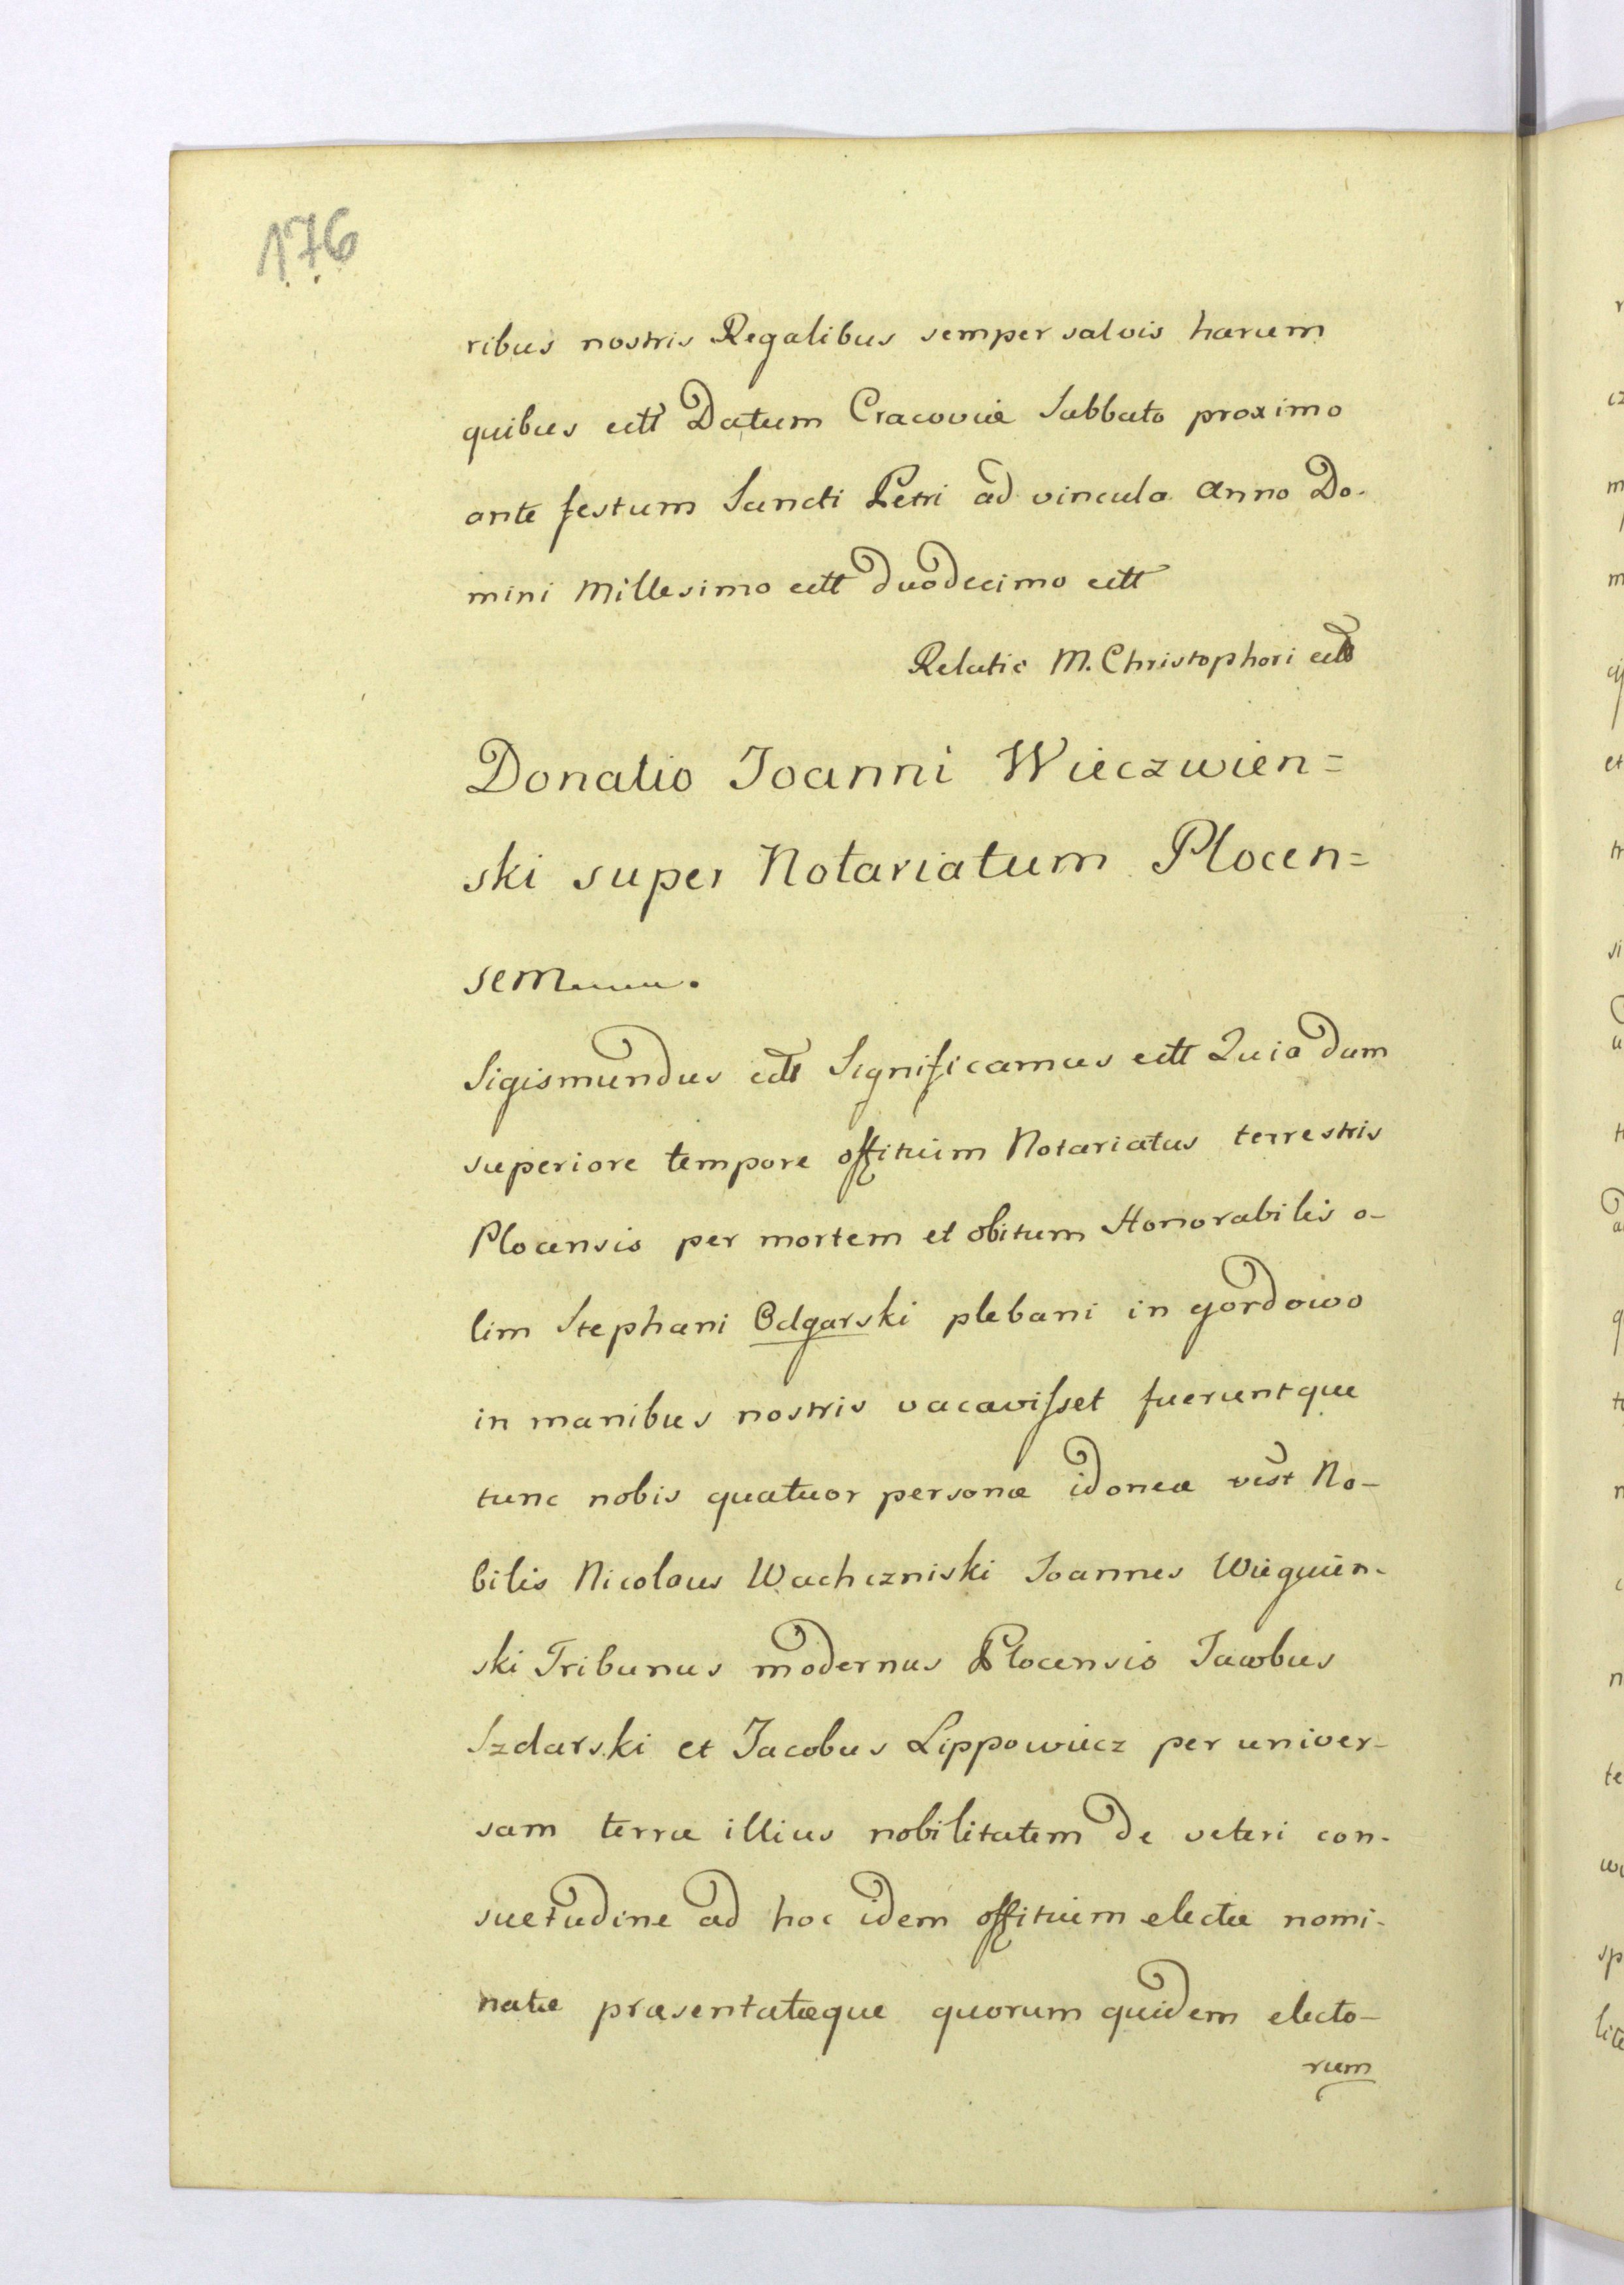 176
ribus nostris Regalibus semper salvis harum
quibus ectt Datum Cracoviæ Sabbato proximo
ante festum Sancti Petri ad vincula Anno Do-
mini Millesimo ectt duodecimo ectt
Relatio M. Christophori ectt
Donatio Joanni Wieczwien=
ski super Notariatum Plocen=
sem.
Sigismundus ectt Significamus ectt Quia dum
superiore tempore offitium Notariatus terrestris
Plocensis per mortem et obitum Honorabilis o-
lim Stephani Odgarski plebani in gordowo
in manibus nostris vacavisset fueruntque
tunc nobis quatuor personæ idoneæ No-
bilis Nicolaus Wachczniski Joannes Wieguien-
ski Tribunus modernus Plocensis Jacobus
Szdarski et Jacobus Lippowiecz per univer-
sam terræ illius nobilitatem de veteri con-
suetudine ad hoc idem offitium electæ nomi-
natæ præsentatæque quorum quidem electo-
rum